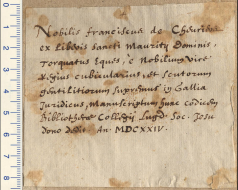 Nobilis franciscus de Cheuriers
ex Libris sancti Mauritij Dominis,
Torquatus Eques, e Nobilium Vice
Regius cubicularius, et scutorum
gentilitiorum supremus in Gallia
Juridicus, Manuscriptum hunc codicem
Bibliothecæ Collegij Lugd. Soc. Jesu
dono dedit An. MDCXXIV.